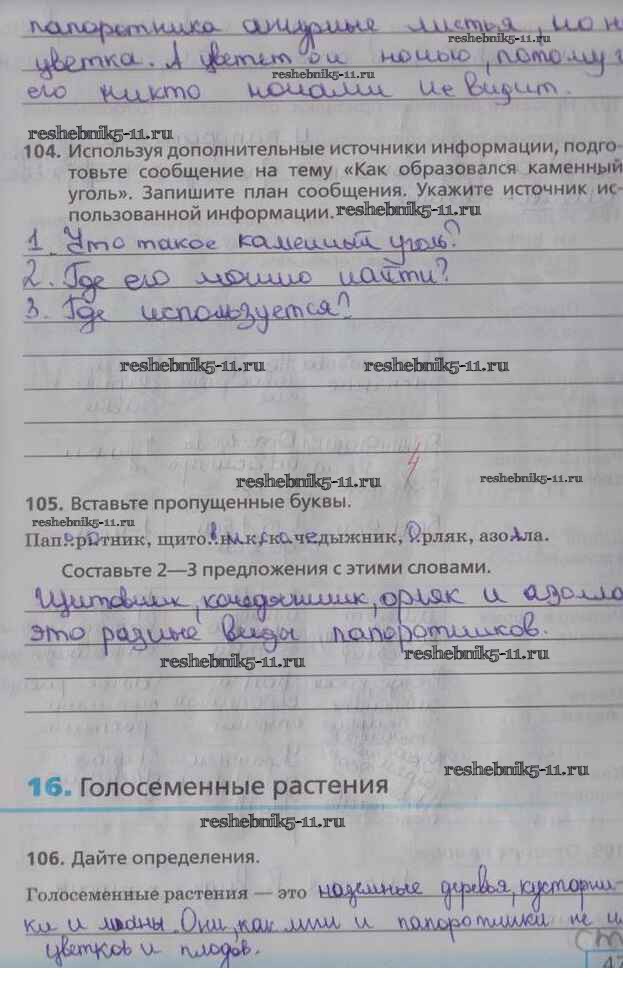 папоротника ажурные листья, но н
reshebnik5-11.ru
цветка. А цветет он ночью, потому
reshebnik5-11.ru
его никто ночами не видит.
reshebnik5-11.ru
104. Используя дополнительные источники информации, подго-
товьте сообщение на тему «Как образовался каменный
уголь». Запишите план сообщения. Укажите источник ис-
пользованной информации. reshebnik5-11.ru
1. Что такое каменный уголь?
2. Где его можно найти?
3. Где используется?
reshebnik5-11.ru reshebnik5-11.ru
4
reshebnik5-11.ru reshebnik5-11.ru
105. Вставьте пропущенные буквы.
reshebnik5-11.ru
Папоротник, щитовник, кочедыжник, орляк, азолла.
Составьте 2—3 предложения с этими словами.
Щитовник, кочедыжник, орляк и азолла
это разные виды папоротников.
reshebnik5-11.ru reshebnik5-11.ru
16. Голосеменные растения
reshebnik5-11.ru
reshebnik5-11.ru
106. Дайте определения.
Голосеменные растения — это наземные деревья, кустарни-
ки и лианы. Они, как мхи и папоротники не и
цветков и плодов.
47